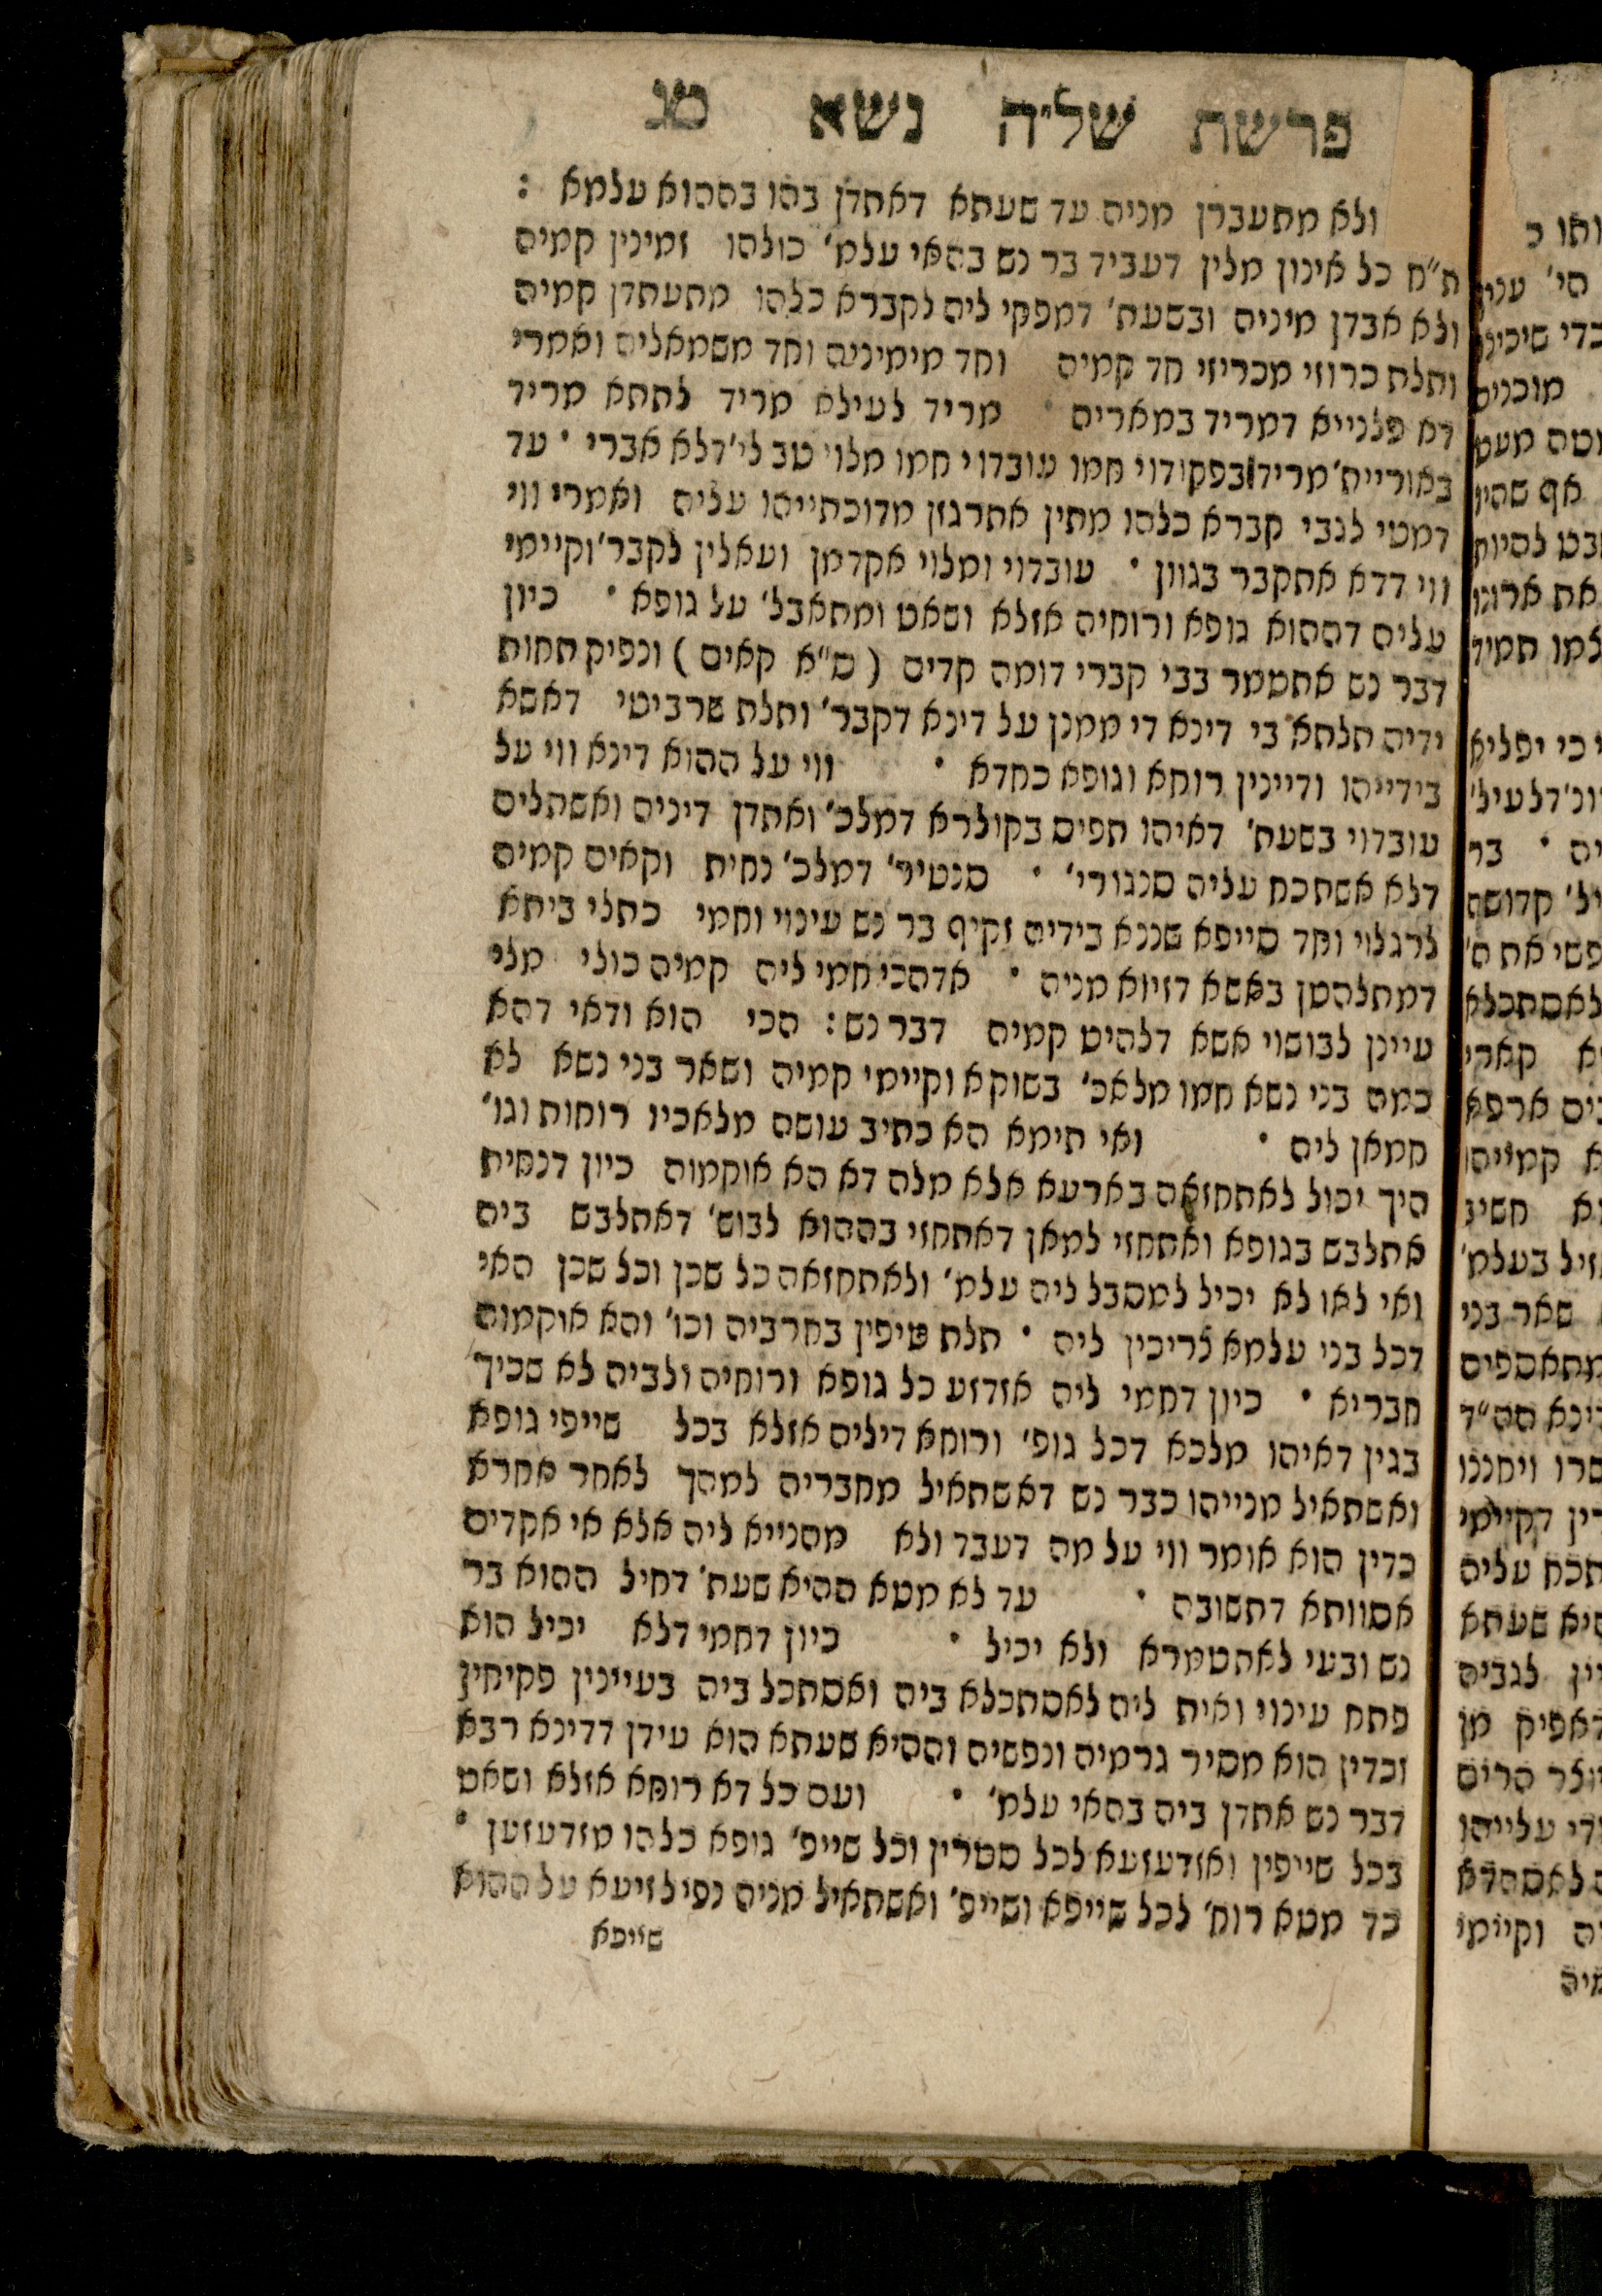 פרשת שלי״ה נשא מג
ולא מתעברן מניה עד שעתא דאתדן בהו בההוא עלמא :
ת״ח כל אינון מלין דעביד בר נש בהאי עלמ׳ כולהו זמינין קמיה
ולא אבדן מיניה ובשעת׳ דמפקי ליה לקברא כלהו מתעתדן קמיה
ותלת כרוזי מכריזי חד קמיה וחד מימיניה וחד משמאליה ואמרי
דא פלנייא דמריד במאריה מריד לעילא מריד לתתא מריד
באוריית׳ מריד בפקודוי חמו עובדוי חמו מלוי טב לי׳ דלא אברי • עד
דמטי לגבי קברא כלהו מתין אתרגזן מדוכתייהו עליה ואמרי ווי
ווי דדא אתקבר בגוון • עובדוי ומלוי אקדמן ועאלין לקבר׳ וקיימי
עליה דההוא גופא ורוחיה אזלא ושאט ומתאבל׳ על גופא • כיון
דבר נש אתטמר בבי קברי דומה קדים ( ס״א קאים ) ונפיק תחות
ידיה תלתא בי דינא די ממנן על דינא דקבר׳ ותלת שרביטי דאשא
בידייהו ודיינין רוחא וגופא כחדא • ווי על ההוא דינא ווי על
עובדוי בשעת׳ דאיהו תפיס בקולרא דמלכ׳ ואתדן דיניה ואשתלים
דלא אשתכח עליה סנגורי׳ • סנטיר׳ דמלכ׳ נחית וקאים קמיה
לרגלוי וחד סייפא שננא בידיה זקיף בר נש עינוי וחמי כתלי ביתא
דמתלהטן באשא דזיוא מניה • אדהכי חמי ליה קמיה כולי מלי
עיינן לבושוי אשא דלהיט קמיה דבר נש : הכי הוא ודאי דהא
כמה בני נשא חמו מלאכ׳ בשוקא וקיימי קמיה ושאר בני נשא לא
חמאן ליה • ואי תימא הא כתיב עושה מלאכיו רוחות וגו׳
היך יכול לאתחזאה בארעא אלא מלה דא הא אוקמוה כיון דנחית
אתלבש בגופא ואתחזי למאן דאתחזי בההוא לבוש׳ דאתלבש ביה
ואי לאו לא יכיל למסבל ליה עלמ׳ ולאתחזאה כל שכן וכל שכן האי
דכל בני עלמא צריכין ליה • תלת טיפין בחרביה וכו׳ והא אוקמוה
חבריא • כיון דחמי ליה אזדזע כל גופא ורוחיה ולביה לא שכיך
בגין דאיהו מלכא דכל גופ׳ ורוחא דיליה אזלא בכל שייפי גופא
ואשתאיל מנייהו כבר נש דאשתאיל מחבריה למהך לאתר אחרא
כדין הוא אומר ווי על מה דעבד ולא מהנייא ליה אלא אי אקדים
אסוותא דתשובה • עד לא מטא ההיא שעת׳ דחיל ההוא בר
נש ובעי לאתטמרא ולא יכיל • כיון דחמי דלא יכיל הוא
פתח עינוי ואית ליה לאסתכלא ביה ואסתכל ביה בעיינין פקיחין
וכדין הוא מסיר גרמיה ונפשיה וההיא שעתא הוא עידן דדינא רבא
דבר נש אתדן ביה בהאי עלמ׳ • ועם כל דא רוחא אזלא ושאט
בכל שייפין ואזדעזעא לכל סטרין וכל שייפ׳ גופא כלהו מזדעזען •
כד מטא רוח׳ לכל שייפא ושייפ׳ ואשתאיל מניה נפיל זיעא על ההוא
שייפא